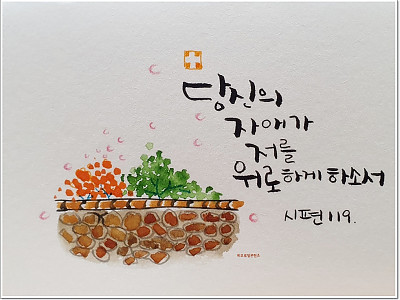 당신의
자애가
저를
위로하게 하소서
시편 119.